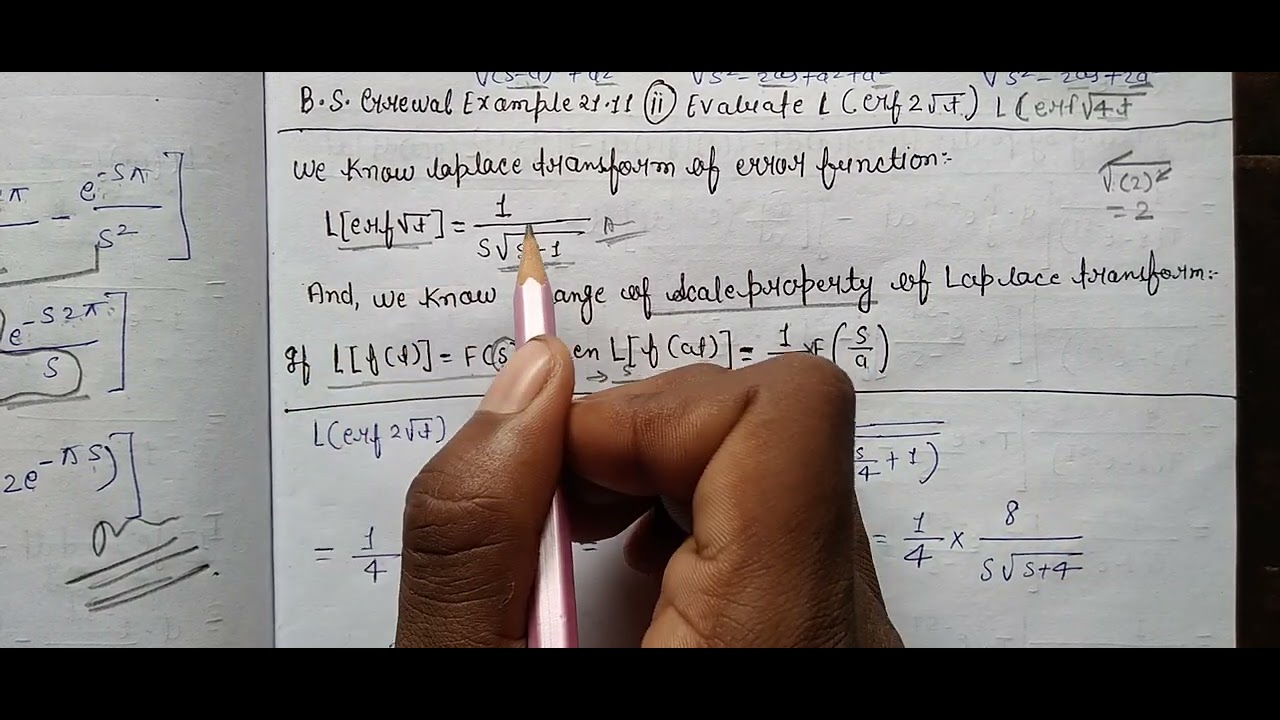 B.S. Grrewal Example 21.11 (ii) Evaluate L(erf 2√t) L(erf√4t
We know laplace transform of error function:-
√(2)²
= 2
L[erf√t] = 1 / S√s+1
And, we know ange of scale property of Laplace transform:-
If L[f(t)] = F(s) en L[f(at)] = 1 × F(s/a)
L(erf 2√t) s/4 + 1)
= 1/4 = = 1/4 × 8 / S√S+4
e^-sπ / s²
e^-s2π / s
2e^-πs)]